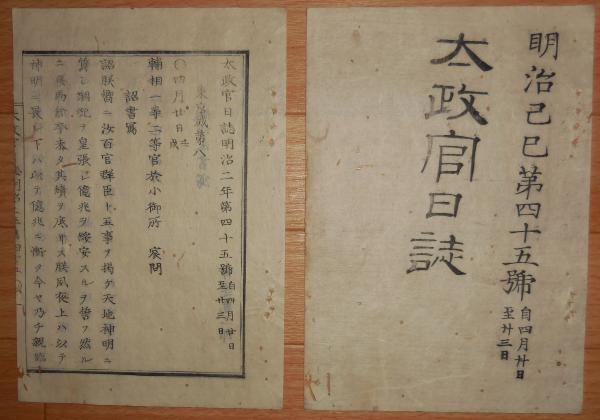 明治己巳第四十五號 自四月廿日 至廿三日
太政官日誌
太政官日誌明治二年第四十五號 自四月廿日 至廿三日
東京城第八
〇四月廿日 壬戌
輔相一等二等官於小御所 宸問
詔書寫
詔朕嘗ニ汝百官群臣ト五事ヲ掲ケ天地神明ニ
質シ綱紀ヲ皇張シ億兆ヲ綏安スルヲ誓フ然ルニ
兵馬倉卒未タ其績ヲ底サス朕夙夜上ハ以テ
神明ニ畏レ下ハ以テ億兆ニ慚ツ今ヤ乃チ親臨